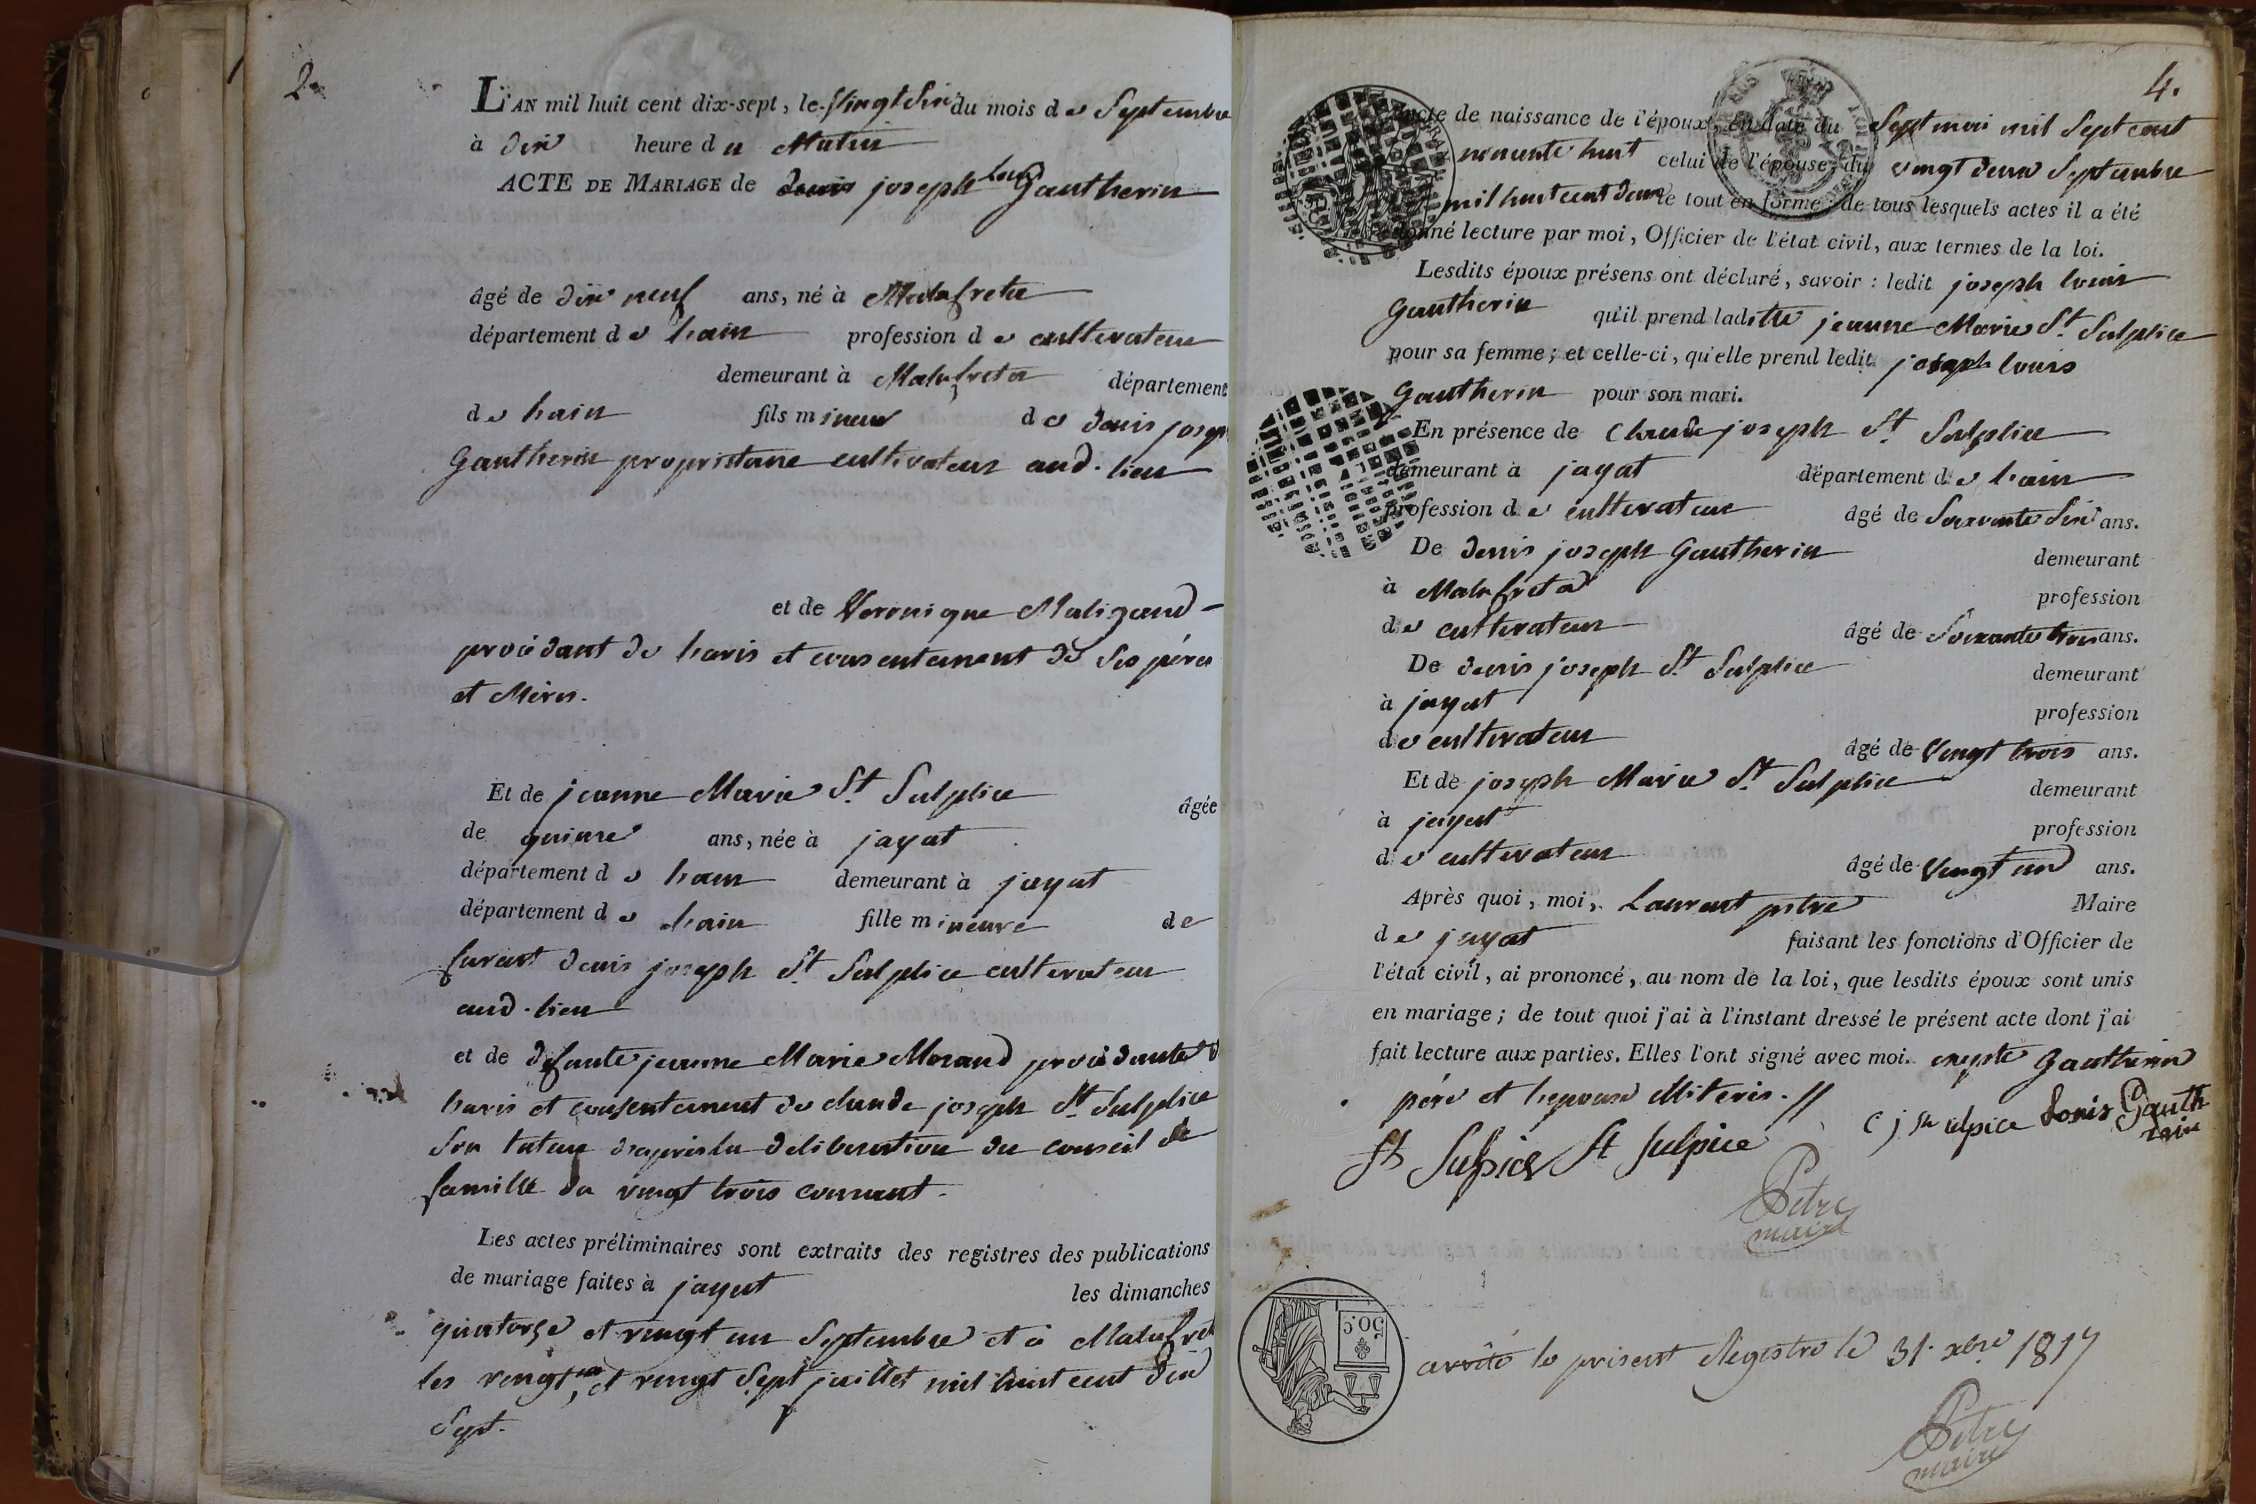 2.
L'AN mil huit cent dix-sept, le Vingt Six du mois de Septembre
à dix heure du Matin
ACTE DE MARIAGE de joseph Louis Gautherin
âgé de dix neuf ans, né à Malafreta
département de hain profession de cultivateur
demeurant à Malafreta département
de hain fils mineur de denis joseph
Gautherin propriétaire cultivateur aud. lieu
et de Veronique Malizand
procédant de havis et consentement de Ses péres
et Méres.
Et de jeanne Marie St. Sulplice âgée
de quinze ans, née à jayat
département de hain demeurant à jayat
département de hain fille mineure de
furent denis joseph St. Sulplice cultivateur
aud. lieu
et de defunte jeanne Marie Morand procédante d
havis et consentement de claude joseph St. Sulplice
Son tuteur d'après la deliberation du conseil de
famille du vingt trois courant.
Les actes préliminaires sont extraits des registres des publications
de mariage faites à jayat les dimanches
quatorze et vingt un Septembre et à Malafret
les vingt, et vingt Sept juillet mil huit cent dix
Sept.
4.
acte de naissance de l'époux, en date du Sept mai mil Sept cent
nonante huit celui de l'épouse, du vingt deux Septembre
mil huit cent deux le tout en forme: de tous lesquels actes il a été
donné lecture par moi, Officier de l'état civil, aux termes de la loi.
Lesdits époux présens ont déclaré, savoir: ledit joseph louis
Gautherin qu'il prend laditte jeanne Marie St. Sulplice
pour sa femme; et celle-ci, qu'elle prend ledit joseph louis
Gautherin pour son mari.
En présence de Claude joseph St. Sulplice
demeurant à jayat département de hain
profession de cultivateur âgé de Soixante Six ans.
De denis joseph Gautherin demeurant
à Malafreta profession
de cultivateur âgé de Soixante trois ans.
De denis joseph St. Sulplice demeurant
à jayat profession
de cultivateur âgé de Vingt trois ans.
Et de joseph Marie St. Sulplice demeurant
à jayat profession
de cultivateur âgé de Vingt un ans.
Après quoi, moi, Laurent pitre Maire
de jayat faisant les fonctions d'Officier de
l'état civil, ai prononcé, au nom de la loi, que lesdits époux sont unis
en mariage; de tout quoi j'ai à l'instant dressé le présent acte dont j'ai
fait lecture aux parties. Elles l'ont signé avec moi. excepte Gautherin
pére et lepouse illiteris. //
St Sulpice St Sulpice c j St ulpice Louis Gauth
erin
Pitre
maire
50.c
arrêté le présent Régistre le 31. xbre 1817
Pitre
maire